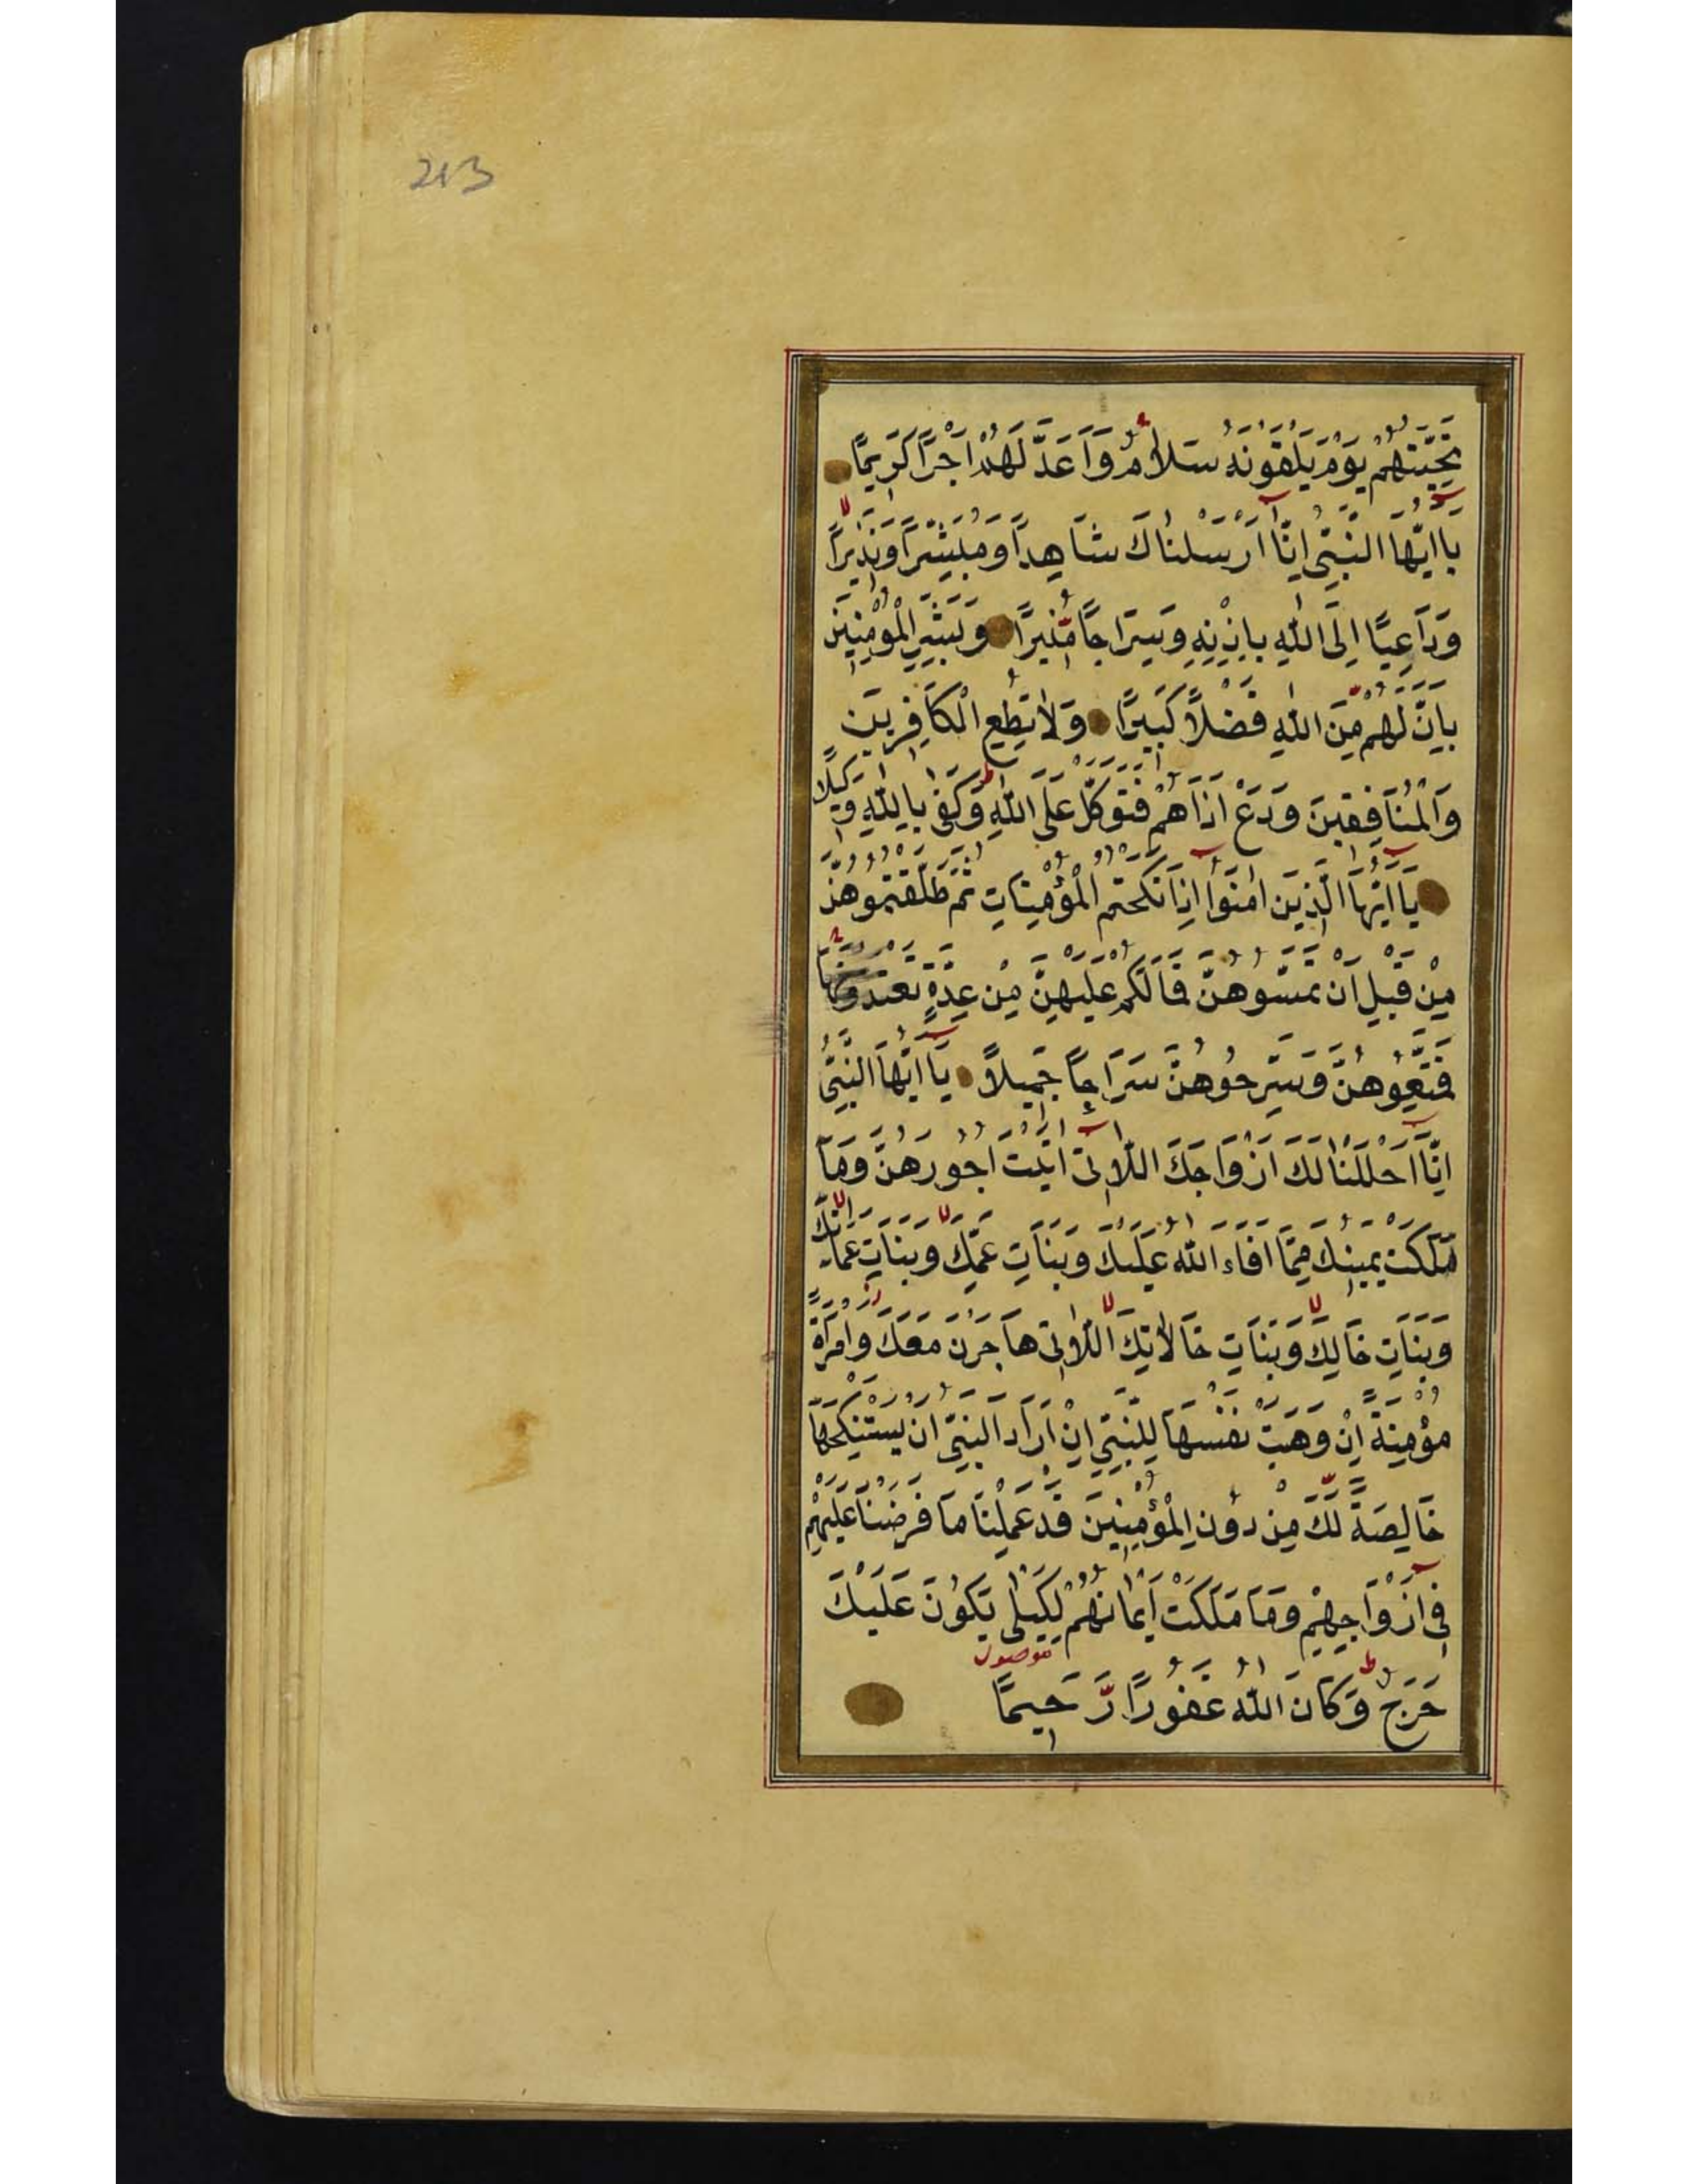 213
تَحِيَّتُهُمْ يَوْمَ يَلْقَوْنَهُ سَلَامٌ وَاَعَدَّ لَهُمْ اَجْرًا كَرِيمًا
يَا اَيُّهَا النَّبِيُّ اِنَّا اَرْسَلْنَاكَ شَاهِدًا وَمُبَشِّرًا وَنَذِيرًا
وَدَاعِيًا اِلَى اللّٰهِ بِاِذْنِهِ وَسِرَاجًا مُّنِيرًا وَبَشِّرِ الْمُؤْمِنِينَ
بِاَنَّ لَهُمْ مِّنَ اللّٰهِ فَضْلًا كَبِيرًا وَلَا تُطِعِ الْكَافِرِينَ
وَالْمُنَافِقِينَ وَدَعْ اَذَاهُمْ فَتَوَكَّلْ عَلَى اللّٰهِ وَكَفٰى بِاللّٰهِ وَكِيلًا
يَا اَيُّهَا الَّذِينَ اٰمَنُوا اِذَا نَكَحْتُمُ الْمُؤْمِنَاتِ ثُمَّ طَلَّقْتُمُوهُنَّ
مِنْ قَبْلِ اَنْ تَمَسُّوهُنَّ فَمَا لَكُمْ عَلَيْهِنَّ مِنْ عِدَّةٍ تَعْتَدُّونَهَا
فَمَتِّعُوهُنَّ وَسَرِّحُوهُنَّ سَرَاحًا جَمِيلًا يَا اَيُّهَا النَّبِيُّ
اِنَّا اَحْلَلْنَا لَكَ اَزْوَاجَكَ اللَّاتِي اٰتَيْتَ اُجُورَهُنَّ وَمَا
مَلَكَتْ يَمِينُكَ مِمَّا اَفَاءَ اللّٰهُ عَلَيْكَ وَبَنَاتِ عَمِّكَ وَبَنَاتِ عَمَّاتِكَ
وَبَنَاتِ خَالِكَ وَبَنَاتِ خَالَاتِكَ اللَّاتِي هَاجَرْنَ مَعَكَ وَامْرَاَةً
مُؤْمِنَةً اِنْ وَهَبَتْ نَفْسَهَا لِلنَّبِيِّ اِنْ اَرَادَ النَّبِيُّ اَنْ يَسْتَنْكِحَهَا
خَالِصَةً لَّكَ مِنْ دُونِ الْمُؤْمِنِينَ قَدْ عَمِلْنَا مَا فَرَضْنَا عَلَيْهِمْ
فِي اَزْوَاجِهِمْ وَمَا مَلَكَتْ اَيْمَانُهُمْ لِكَيْلَا يَكُونَ عَلَيْكَ
موصول
حَرَجٌ وَكَانَ اللّٰهُ غَفُورًا رَّحِيمًا